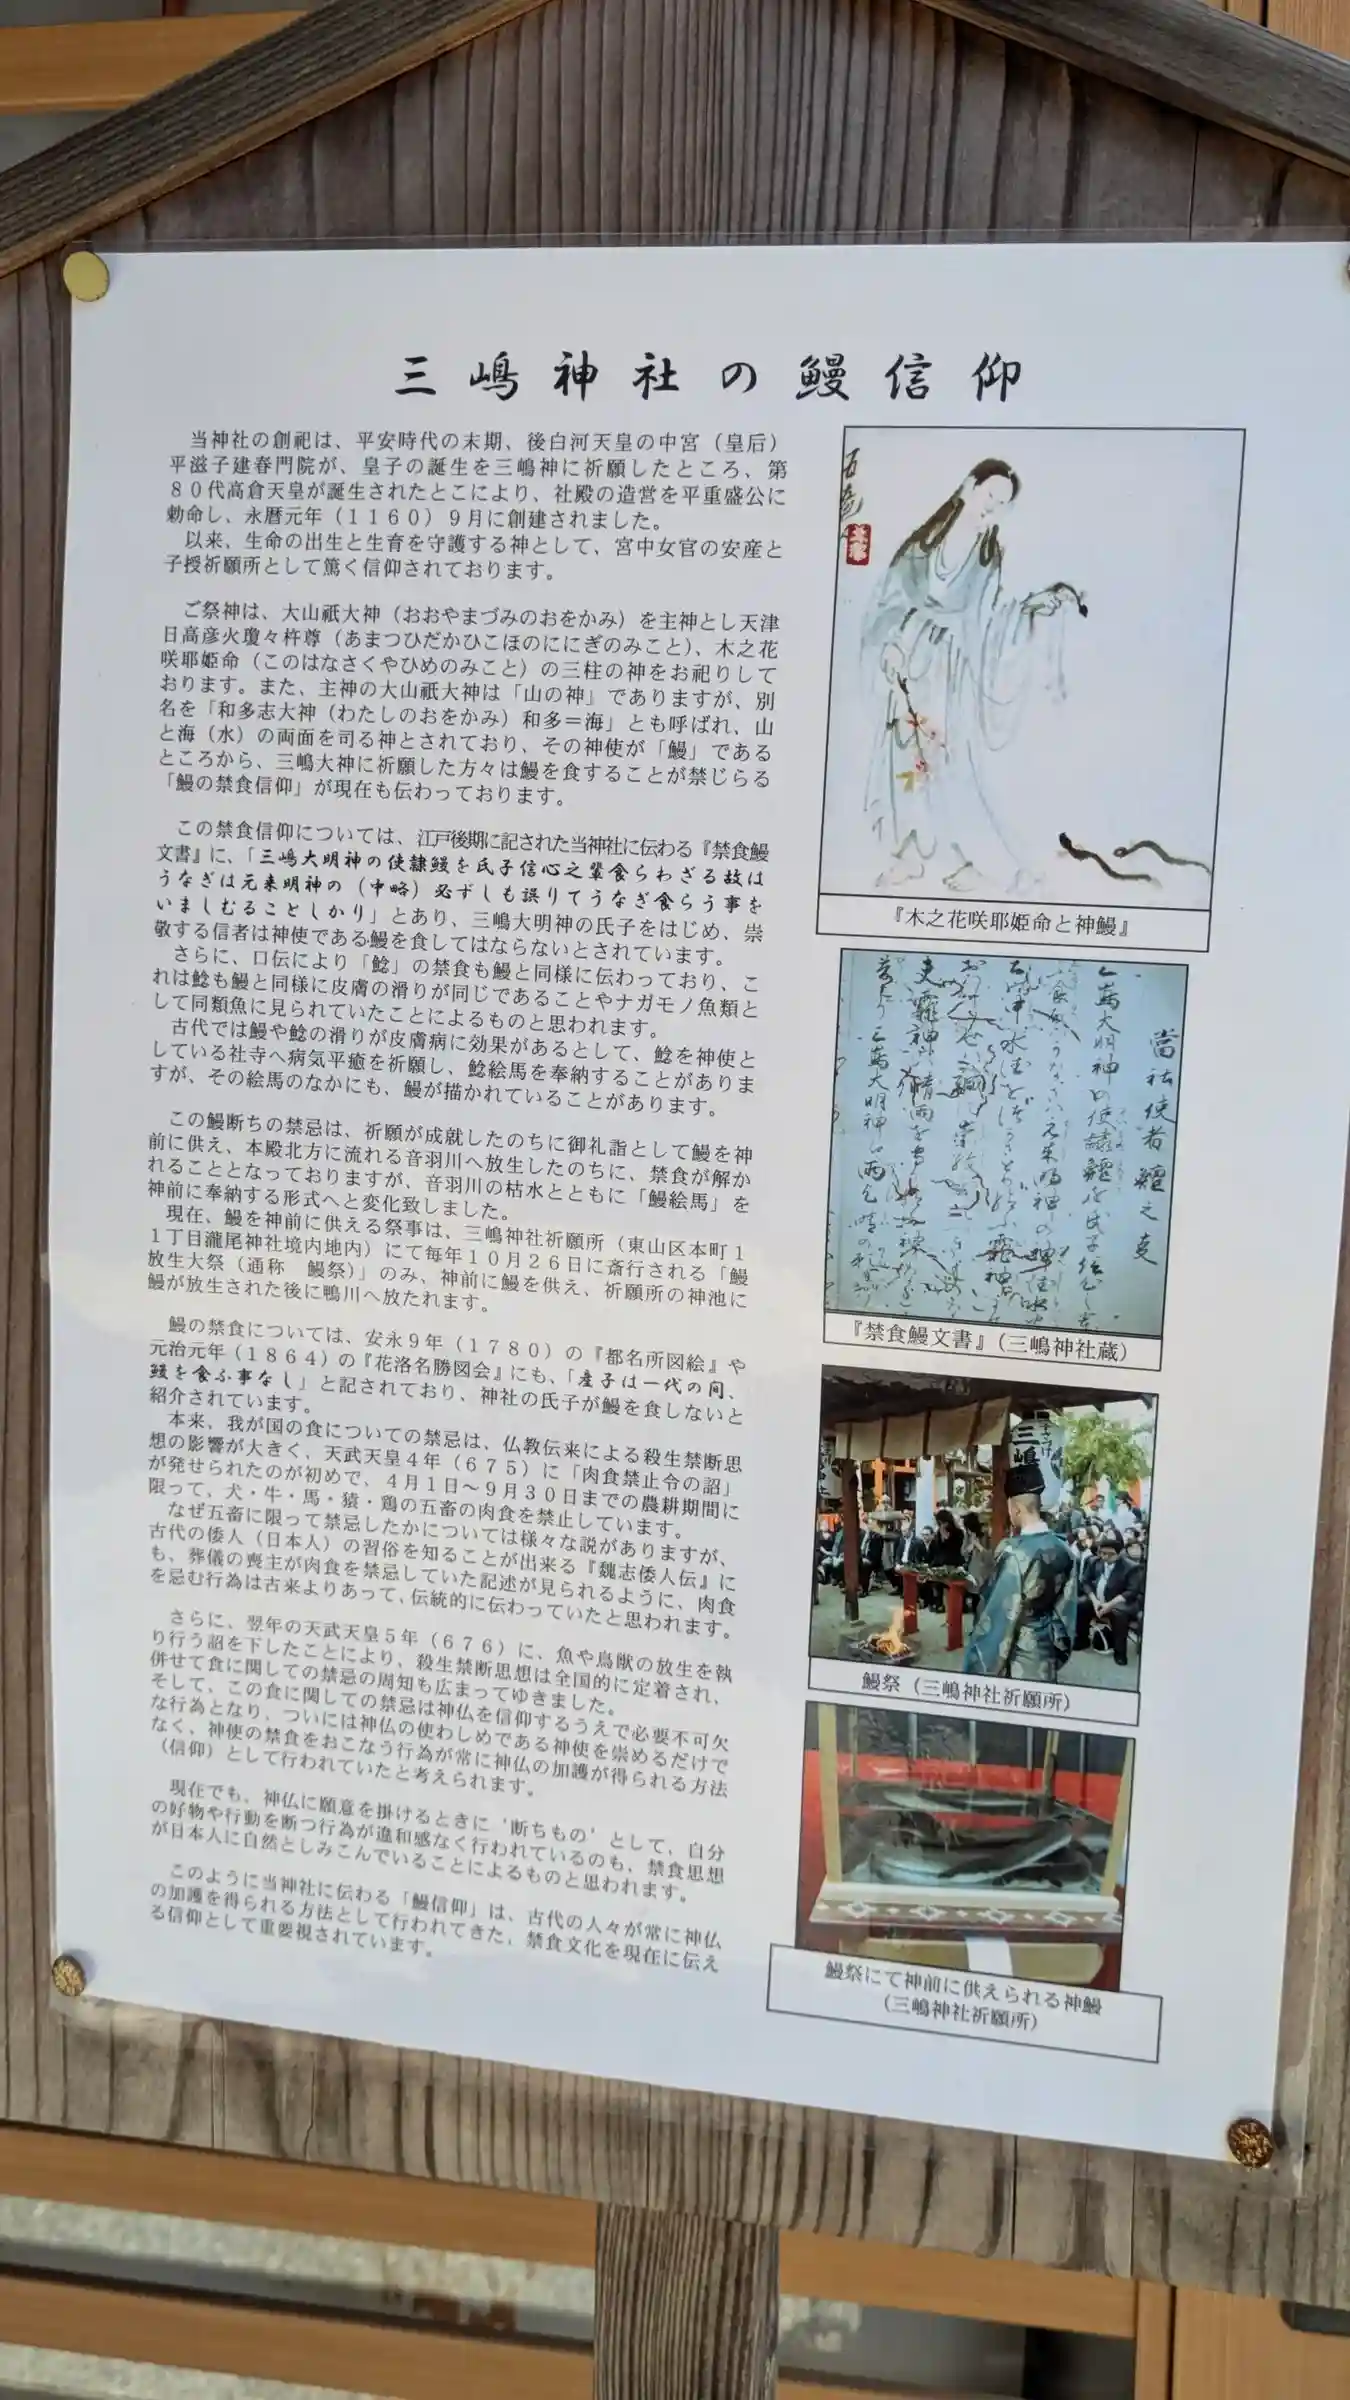 三嶋神社の鰻信仰
当神社の創祀は、平安時代の末期、後白河天皇の中宮（皇后）
平滋子建春門院が、皇子の誕生を三嶋神に祈願したところ、第
８０代高倉天皇が誕生されたとこにより、社殿の造営を平重盛公に
勅命し、永暦元年（１１６０）９月に創建されました。
以来、生命の出生と生育を守護する神として、宮中女官の安産と
子授祈願所として篤く信仰されております。
ご祭神は、大山祇大神（おおやまづみのおをかみ）を主神とし天津
日高彦火瓊々杵尊（あまつひだかひこほのににぎのみこと）、木之花
咲耶姫命（このはなさくやひめのみこと）の三柱の神をお祀りして
おります。また、主神の大山祇大神は「山の神」でありますが、別
名を「和多志大神（わたしのおをかみ）和多＝海」とも呼ばれ、山
と海（水）の両面を司る神とされており、その神使が「鰻」である
ところから、三嶋大神に祈願した方々は鰻を食することが禁じらる
「鰻の禁食信仰」が現在も伝わっております。
この禁食信仰については、江戸後期に記された当神社に伝わる『禁食鰻
文書』に、「三嶋大明神の使隷鰻を氏子信心之輩食らわざる故は
うなぎは元来明神の（中略）必ずしも誤りてうなぎ食らう事を
いましむることしかり」とあり、三嶋大明神の氏子をはじめ、崇
敬する信者は神使である鰻を食してはならないとされています。
さらに、口伝により「鯰」の禁食も鰻と同様に伝わっており、こ
れは鯰も鰻と同様に皮膚の滑りが同じであることやナガモノ魚類と
して同類魚に見られていたことによるものと思われます。
古代では鰻や鯰の滑りが皮膚病に効果があるとして、鯰を神使と
している社寺へ病気平癒を祈願し、鯰絵馬を奉納することがありま
すが、その絵馬のなかにも、鰻が描かれていることがあります。
この鰻断ちの禁忌は、祈願が成就したのちに御礼詣として鰻を神
前に供え、本殿北方に流れる音羽川へ放生したのちに、禁食が解か
れることとなっておりますが、音羽川の枯水とともに「鰻絵馬」を
神前に奉納する形式へと変化致しました。
現在、鰻を神前に供える祭事は、三嶋神社祈願所（東山区本町１
１丁目瀧尾神社境内地内）にて毎年１０月２６日に斎行される「鰻
放生大祭（通称　鰻祭）」のみ、神前に鰻を供え、祈願所の神池に
鰻が放生された後に鴨川へ放たれます。
鰻の禁食については、安永９年（１７８０）の『都名所図絵』や
元治元年（１８６４）の『花洛名勝図会』にも、「産子は一代の間、
鰻を食ふ事なし」と記されており、神社の氏子が鰻を食しないと
紹介されています。
本来、我が国の食についての禁忌は、仏教伝来による殺生禁断思
想の影響が大きく、天武天皇４年（６７５）に「肉食禁止令の詔」
が発せられたのが初めで、４月１日〜９月３０日までの農耕期間に
限って、犬・牛・馬・猿・鶏の五畜の肉食を禁止しています。
なぜ五畜に限って禁忌したかについては様々な説がありますが、
古代の倭人（日本人）の習俗を知ることが出来る『魏志倭人伝』に
も、葬儀の喪主が肉食を禁忌していた記述が見られるように、肉食
を忌む行為は古来よりあって、伝統的に伝わっていたと思われます。
さらに、翌年の天武天皇５年（６７６）に、魚や鳥獣の放生を執
り行う詔を下したことにより、殺生禁断思想は全国的に定着され、
併せて食に関しての禁忌の周知も広まってゆきました。
そして、この食に関しての禁忌は神仏を信仰するうえで必要不可欠
な行為となり、ついには神仏の使わしめである神使を崇めるだけで
なく、神使の禁食をおこなう行為が常に神仏の加護が得られる方法
（信仰）として行われていたと考えられます。
現在でも、神仏に願意を掛けるときに‘断ちもの’として、自分
の好物や行動を断つ行為が違和感なく行われているのも、禁食思想
が日本人に自然としみこんでいることによるものと思われます。
このように当神社に伝わる「鰻信仰」は、古代の人々が常に神仏
の加護を得られる方法として行われてきた、禁食文化を現在に伝え
る信仰として重要視されています。
『木之花咲耶姫命と神鰻』
『禁食鰻文書』（三嶋神社蔵）
鰻祭（三嶋神社祈願所）
鰻祭にて神前に供えられる神鰻
（三嶋神社祈願所）